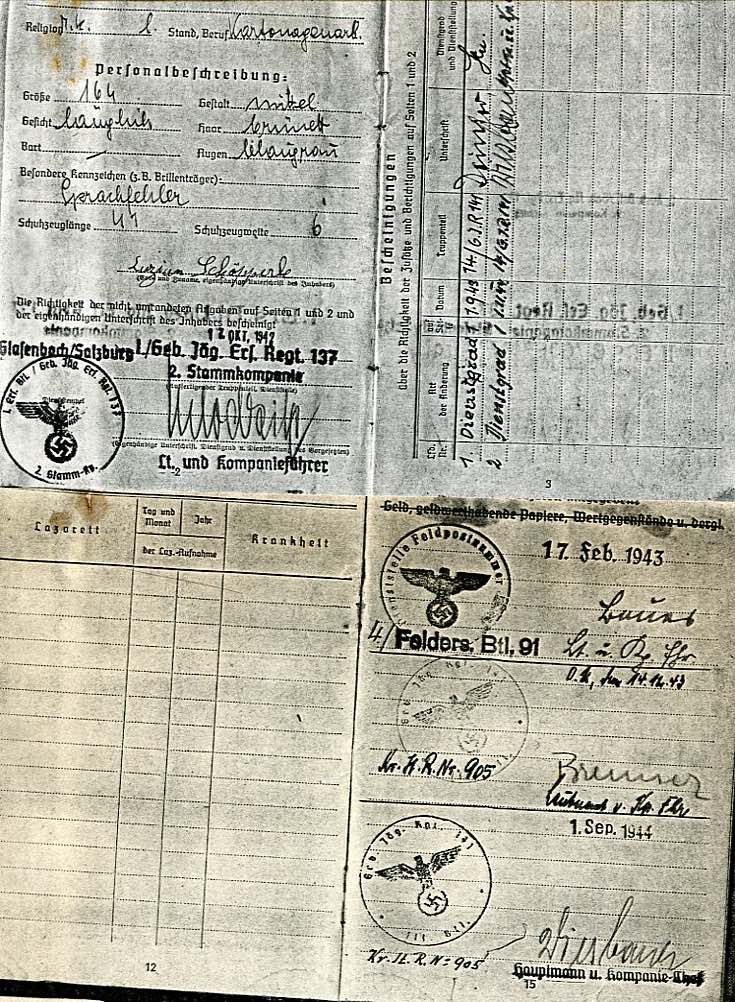 Religion r.k. Stand, Beruf Kartonagenarb.
Personalbeschreibung:
Größe 164 Gestalt mittel
Gesicht länglich Haar brünett
Bart — Augen blaugrau
Besondere Kennzeichen (z.B. Brillenträger):
Sprachfehler
Schuhzeuglänge Schuhzeugweite 6
Luzian Schöpperle
(Vor- und Zuname, eigenhändige Unterschrift des Inhabers)
Die Richtigkeit der nicht umrandeten Angaben auf Seiten 1 und 2 und
der eigenhändigen Unterschrift des Inhabers bescheinigt
12 OKT. 1942
Glasenbach/Salzburg I./Geb. Jäg. Ers. Regt. 137
2. Stammkompanie
I. Ers. Btl. / Geb. Jäg. Ers. Rgt. 137
2. Stamm-Kp.
(Eigenhändige Unterschrift, Dienstgrad u. Dienststellung des Vorgesetzten)
Lt. und Kompanieführer
2
Bescheinigungen
über die Richtigkeit der Zusätze und Berichtigungen auf Seiten 1 und 2
Lfd. Nr.
Art der Änderung
auf Seite
Datum
Truppenteil
Unterschrift
Dienstgrad und Dienststellung
1. Dienstgrad 1 1.9.43 14/G.J.R 141
2 Dienstgrad 1
3
Lazarett
Tag und Monat
Jahr
der Laz.-Aufnahme
Krankheit
12
Geld, geldwerthabende Papiere, Wertgegenstände u. dergl.
Dienststelle Feldpostnummer
17. Feb. 1943
Bauer
4/Felders. Btl. 91 Lt. u. Kp. Fhr.
O.U., den 14.12.43
Kr. St. R. Nr. 905
Brenner
Leutnant u. Kp. Fhr
1. Sep. 1944
Grb. Jäg. Rgt. 141
III. Btl.
Kr. St. R. Nº 905
Hauptmann u. Kompanie-Chef
15